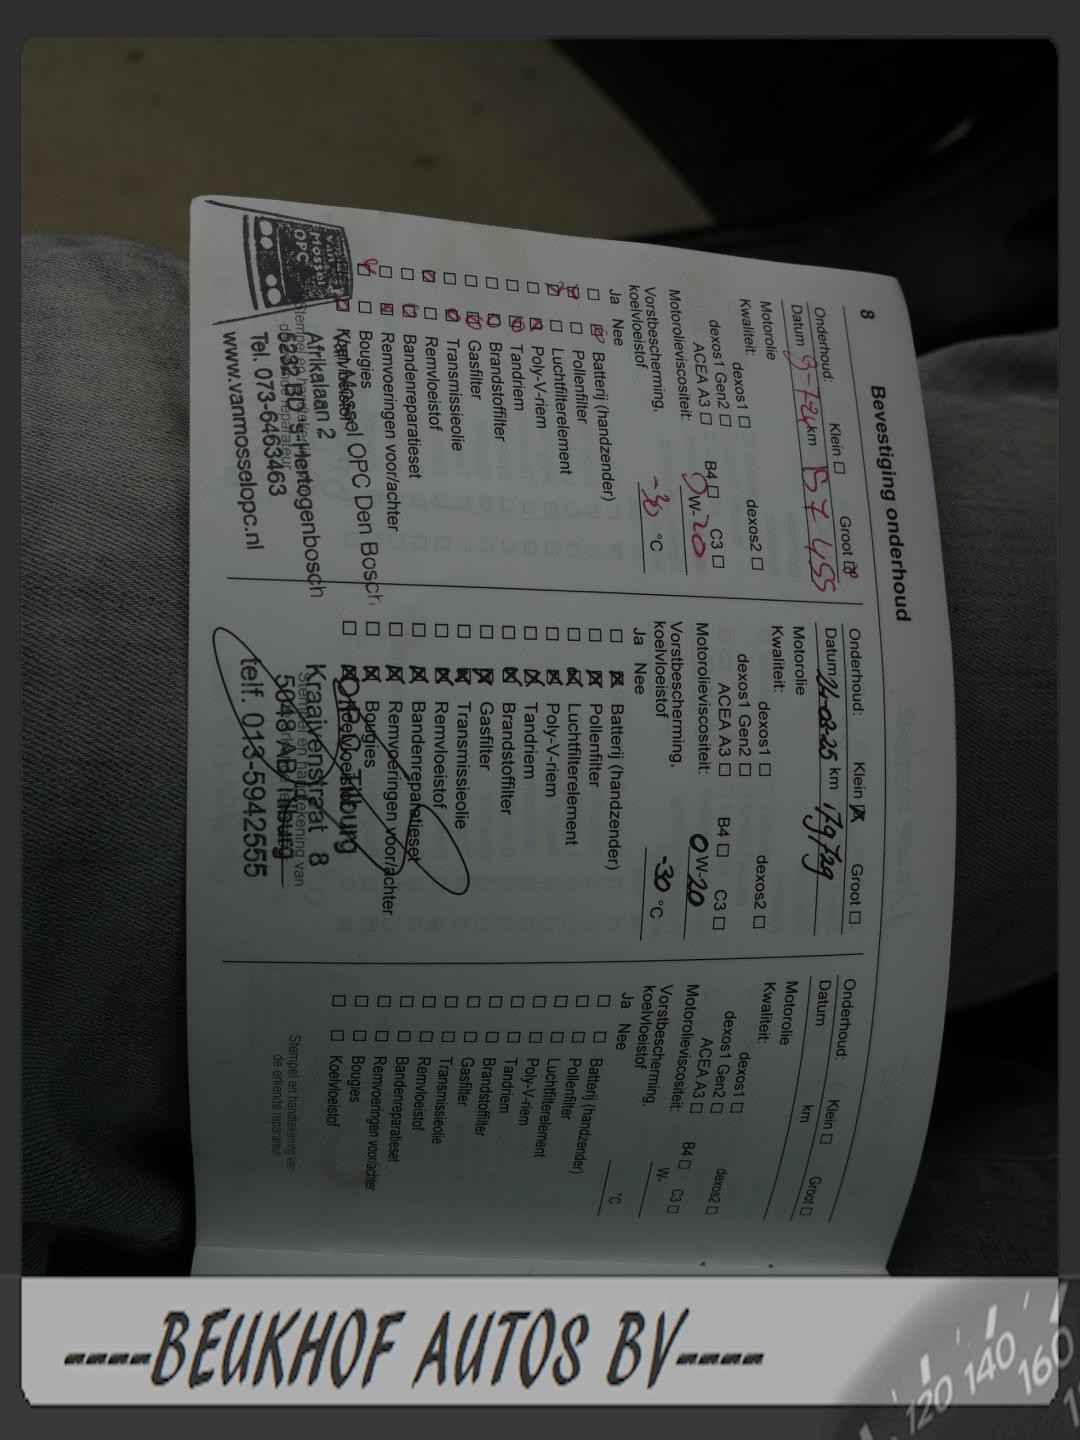 8
Bevestiging onderhoud
Onderhoud: Klein Groot
Datum 9-7-24 km 157455
Motorolie
Kwaliteit: dexos1 dexos2
dexos1 Gen2
ACEA A3 B4 C3
Motorolieviscositeit: 0 W- 20
Vorstbescherming,
koelvloeistof -30 °C
Ja Nee
Batterij (handzender)
Pollenfilter
Luchtfilterelement
Poly-V-riem
Tandriem
Brandstoffilter
Gasfilter
Transmissieolie
Remvloeistof
Bandenreparatieset
Remvoeringen voor/achter
Bougies
Koelvloeistof
Van Mossel OPC Den Bosch
Afrikalaan 2
5232 BD 's-Hertogenbosch
Tel. 073-6463463
www.vanmosselopc.nl
van
Mossel
OPC
Onderhoud: Klein Groot
Datum 24-03-25 km 179729
Motorolie
Kwaliteit: dexos1 dexos2
dexos1 Gen2
ACEA A3 B4 C3
Motorolieviscositeit: 0 W- 20
Vorstbescherming,
koelvloeistof -30 °C
Ja Nee
Batterij (handzender)
Pollenfilter
Luchtfilterelement
Poly-V-riem
Tandriem
Brandstoffilter
Gasfilter
Transmissieolie
Remvloeistof
Bandenreparatieset
Remvoeringen voor/achter
Bougies
Koelvloeistof
Stempel en handtekening van
Tilburg
Kraaivenstraat 8
5048 AB Tilburg
telf. 013-5942555
Onderhoud: Klein Groot
Datum km
Motorolie
Kwaliteit: dexos1 dexos2
dexos1 Gen2
ACEA A3 B4 C3
Motorolieviscositeit: W-
Vorstbescherming,
koelvloeistof °C
Ja Nee
Batterij (handzender)
Pollenfilter
Luchtfilterelement
Poly-V-riem
Tandriem
Brandstoffilter
Gasfilter
Transmissieolie
Remvloeistof
Bandenreparatieset
Remvoeringen voor/achter
Bougies
Koelvloeistof
Stempel en handtekening van
de erkende reparateur
----BEUKHOF AUTOS BV----
120 140 160